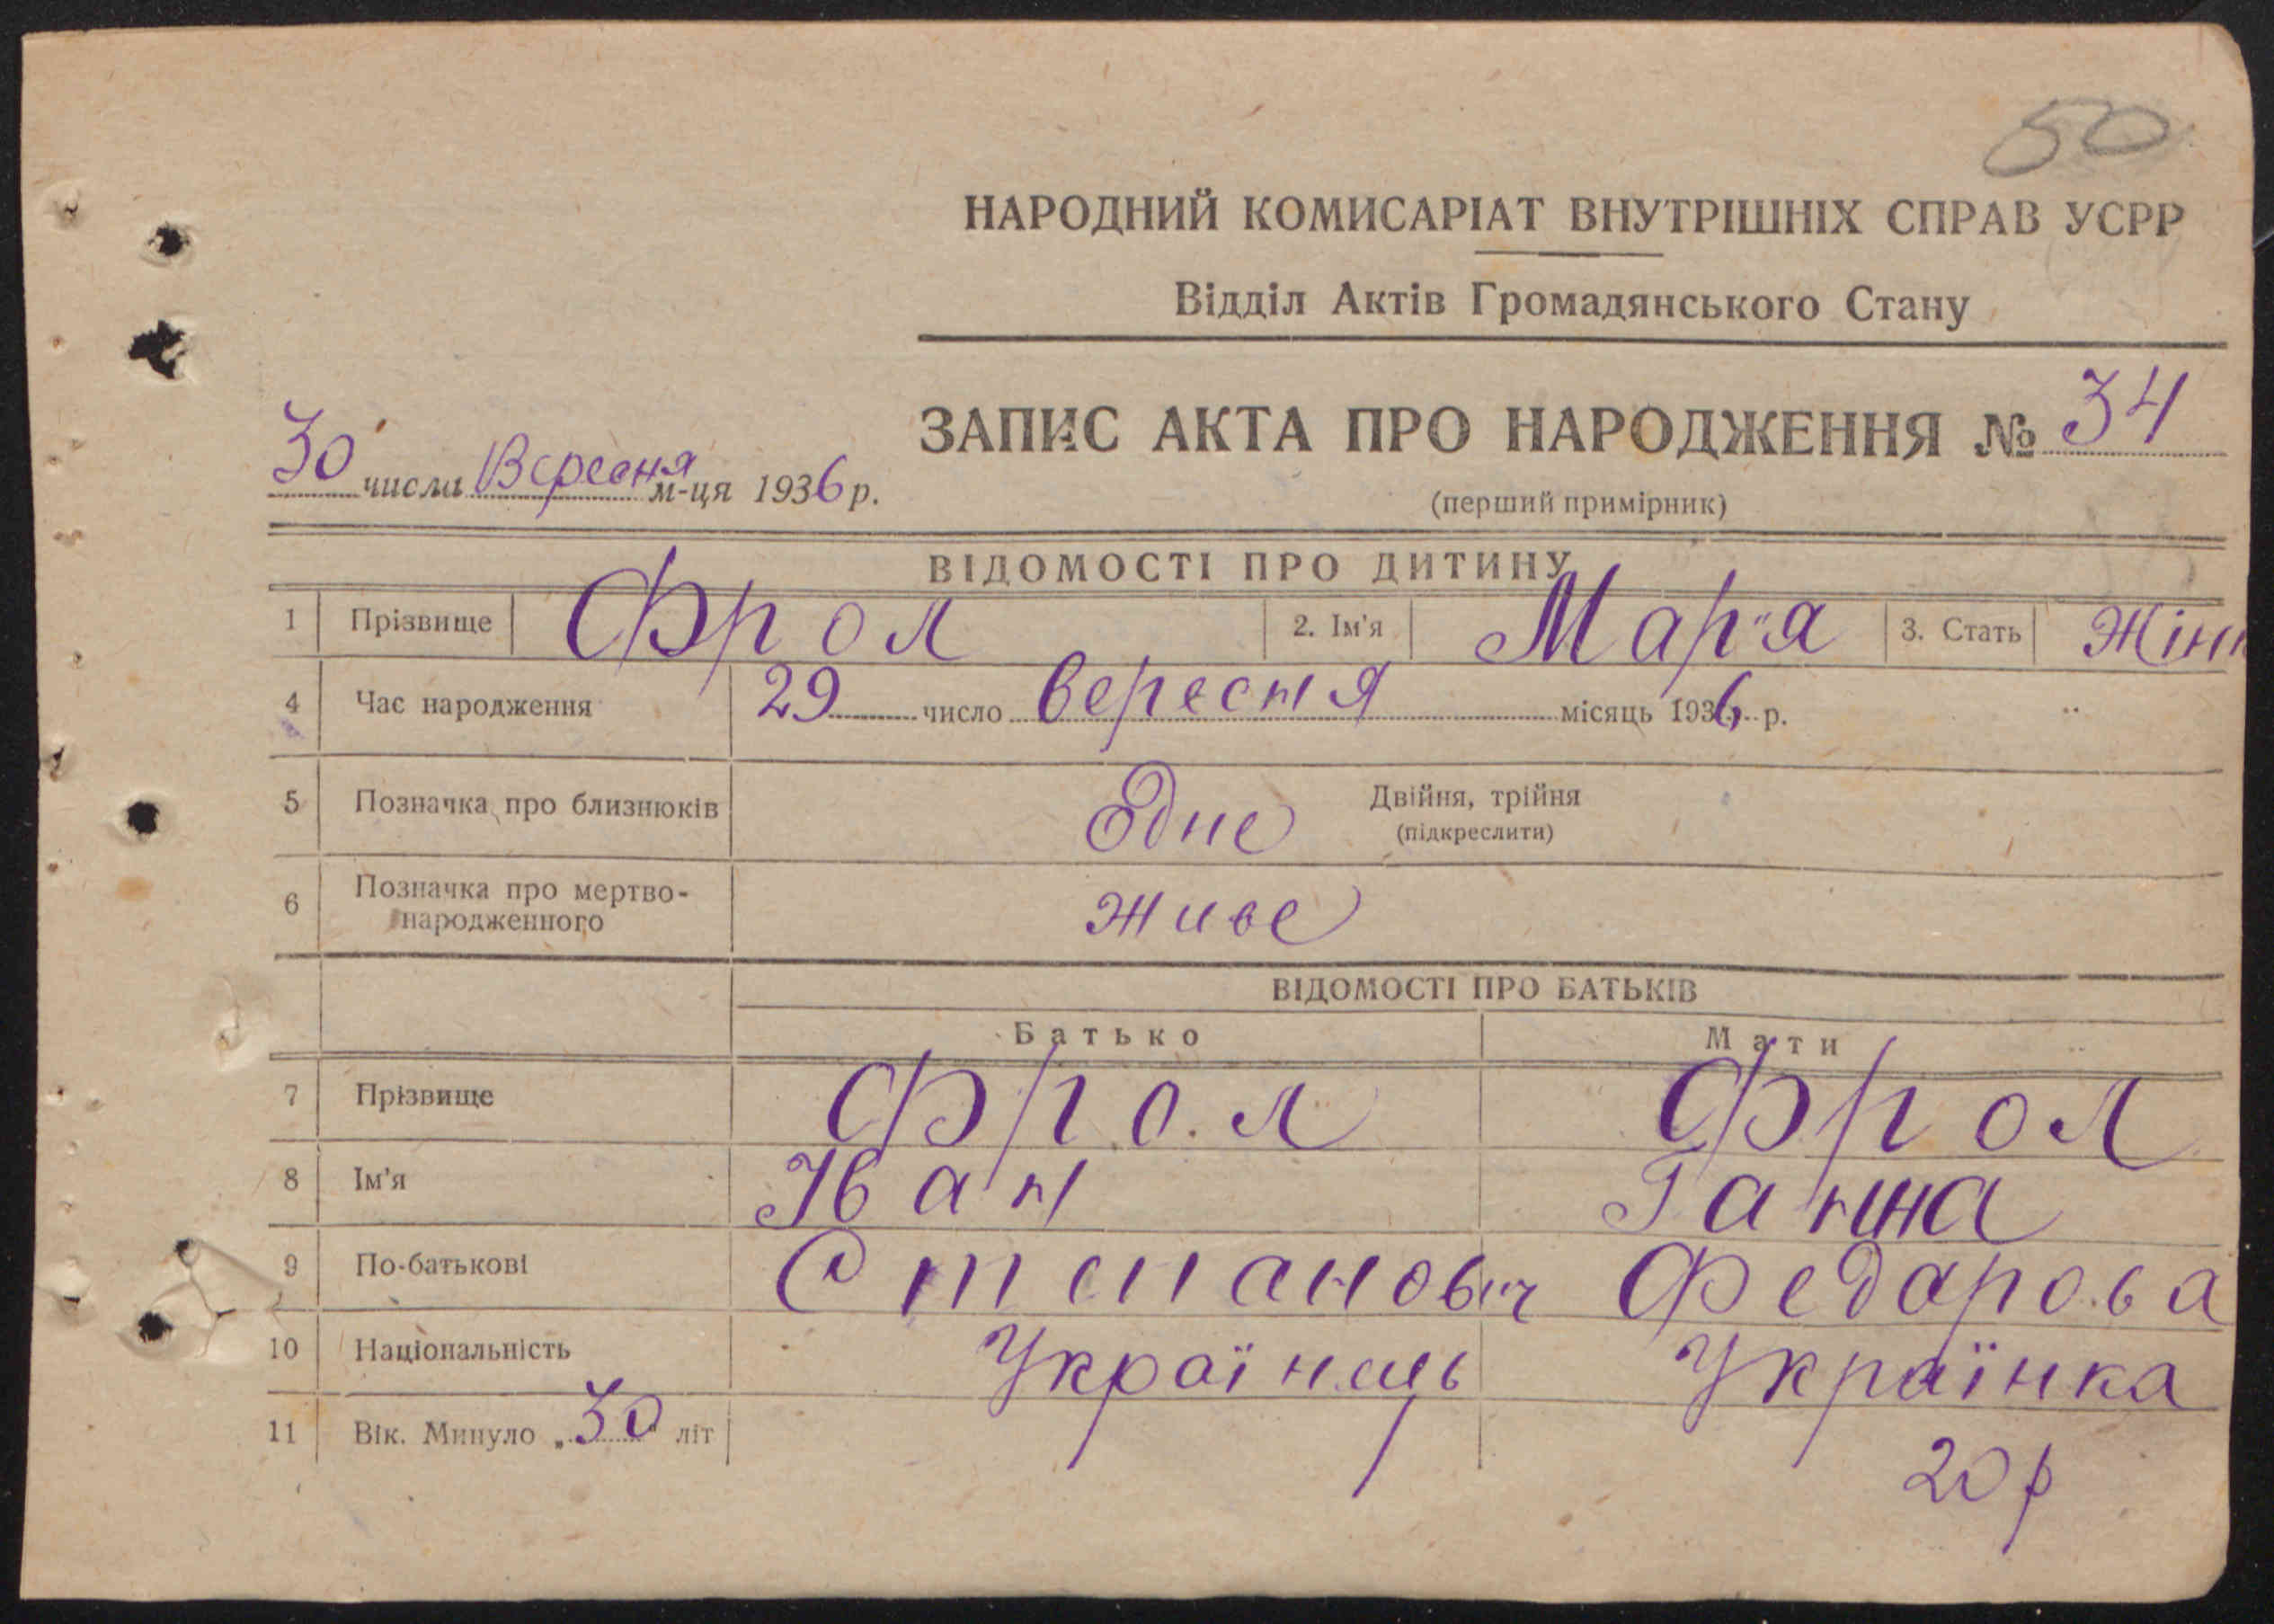 50
НАРОДНИЙ КОМИСАРІАТ ВНУТРІШНІХ СПРАВ УСРР
Відділ Актів Громадянського Стану
ЗАПИС АКТА ПРО НАРОДЖЕННЯ № 34
30 числа Вересня м-ця 1936 р.
(перший примірник)
ВІДОМОСТІ ПРО ДИТИНУ
1 Прізвище Фрол 2. Ім'я Мар"я 3. Стать Жін
4 Час народження 29 число Вересня місяць 1936 р.
5 Позначка про близнюків Одне Двійня, трійня
(підкреслити)
6 Позначка про мертво-
народженного живе
ВІДОМОСТІ ПРО БАТЬКІВ
Батько Мати
7 Прізвище Фрол Фрол
8 Ім'я Іван Ганна
9 По-батькові Степанович Федарова
10 Національність Українець Українка
11 Вік. Минуло „30" літ 20 р